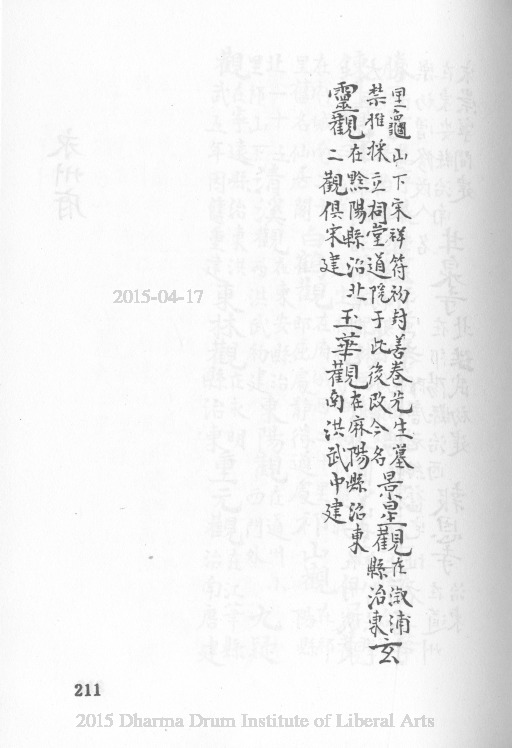 里龜山下宋祥符初封善卷先生墓
禁樵採立祠堂道院于此後改今名
景星觀在溆浦
縣治東玄
靈觀在黔陽縣治北
二觀俱宋建
玉華觀在麻陽縣治東
南洪武中建
2015-04-17
211
2015 Dharma Drum Institute of Liberal Arts